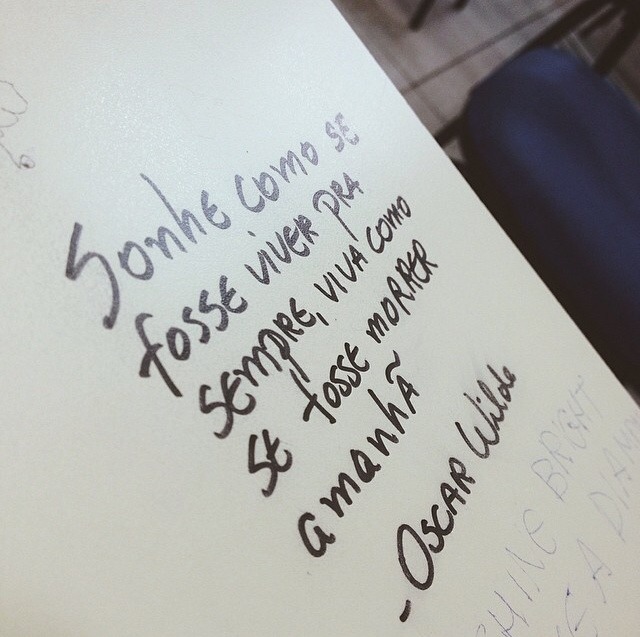 Sonhe como se
fosse viver pra
sempre, viva como
se fosse morrer
amanhã
- Oscar Wilde
SHINE BRIGHT
A DIAMON